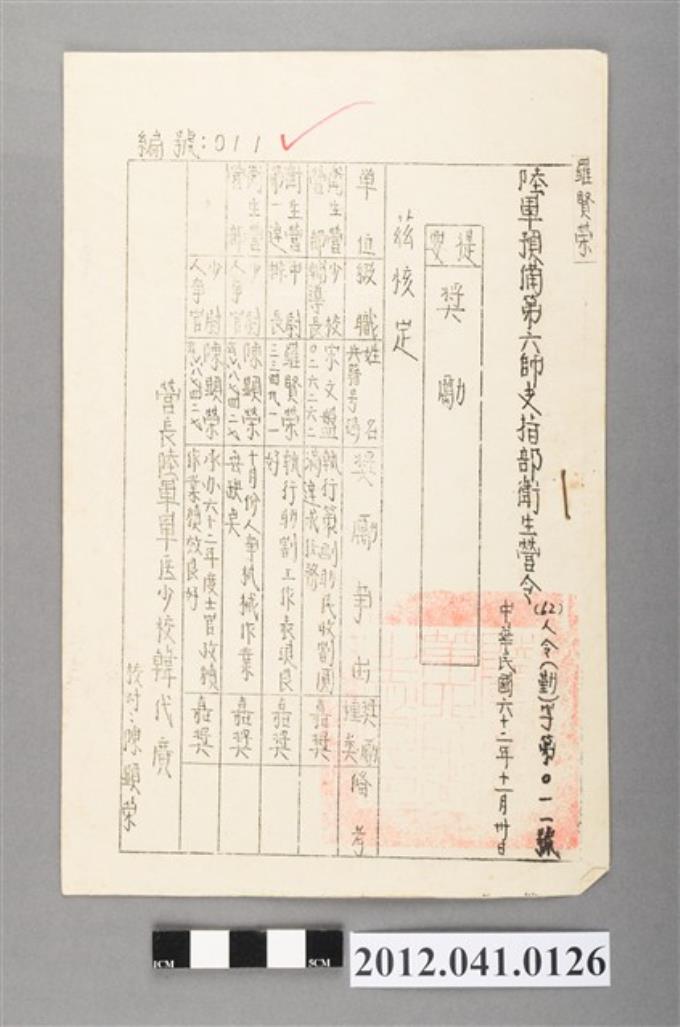 編號:011
羅賢榮
陸軍預備第六師支指部衛生營令
(62)人令(勤)字第0一一號
中華民國六十二年十一月卅日
提要
獎勵
茲核定
單位
級職
姓名
兵籍号碼
獎勵事由
獎勵種類
備考
衛生營營部
少校輔導長
宋文盤
執行策劃助民收割圓滿達成任務
嘉獎
衛生營第一連
中尉排長
羅賢榮
執行助割工作表現良好
嘉獎
衛生營營部
少尉人事官
陳顯榮
十月份人事机械作業無缺失
嘉獎
少尉人事官
陳顯榮
承办六十二年度士官政績作業績效良好
嘉獎
營長陸軍軍医少校韓代廣
校对:陳顯榮
1CM
5CM
2012.041.0126